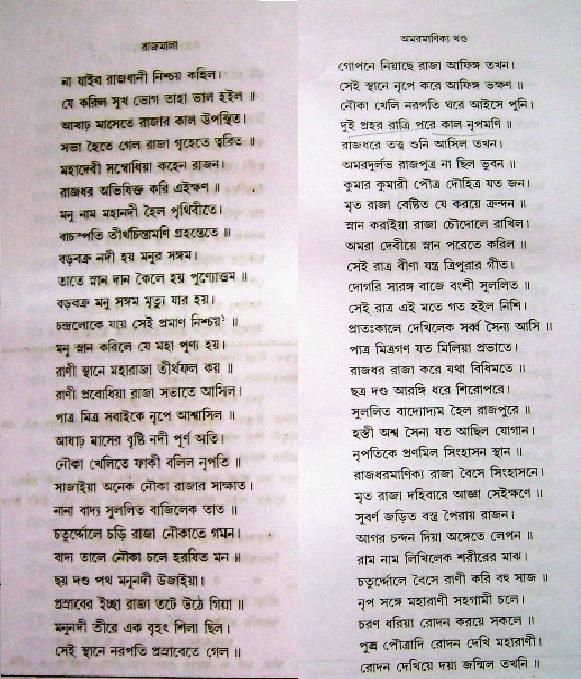 রাজমালা
না যাইব রাজধানী নিশ্চয় কহিল।
যে করিল সুখ ভোগ তাহা ভাল হইল ॥
আষাঢ় মাসেতে রাজার কাল উপস্থিত।
সভা হৈতে গেল রাজা গৃহেতে ত্বরিত ॥
মহাদেবী সম্বোধিয়া কহেন রাজন।
রাজধর অভিষিক্ত করি এইক্ষণ ॥
মনু নাম মহানদী হৈল পৃথিবীতে।
বাচস্পতি তীর্থচিন্তামণি গ্রহন্তেতে ॥
বড়বক্র নদী হয় মনুর সঙ্গম।
তাতে স্নান দান কৈলে হয় পুণ্যোত্তম ॥
বড়বক্র মনু সঙ্গম মৃত্যু যার হয়।
চন্দ্রলোকে যায় সেই প্রমাণ নিশ্চয় ॥
মনু স্নান করিলে যে মহা পুণ্য হয়।
রাণী স্থানে মহারাজা তীর্থফল কয় ॥
রাণী প্রবোধিয়া রাজা সভাতে আসিল।
পাত্র মিত্র সবাইকে নৃপে আশ্বাসিল ॥
আষাঢ় মাসের বৃষ্টি নদী পূর্ণ অতি।
নৌকা খেলিতে ফাকী বলিল নৃপতি ॥
সাজাইয়া অনেক নৌকা রাজার সাক্ষাত।
নানা বাদ্য সুললিত বাজিলেক তাত ॥
চতুর্দ্দোলে চড়ি রাজা নৌকাতে গমন।
বাদ্য তালে নৌকা চলে হরষিত মন ॥
ছয় দণ্ড পথ মনুনদী উজাইয়া।
প্রস্রাবের ইচ্ছা রাজা তটে উঠে গিয়া ॥
মনুনদী তীরে এক বৃহৎ শিলা ছিল।
সেই স্থানে নরপতি প্রস্রাবেতে গেল ॥
অমরমাণিক্য খণ্ড
গোপনে নিয়াছে রাজা আফিঙ্গ তখন।
সেই স্থানে নৃপে করে আফিঙ্গ ভক্ষণ ॥
নৌকা খেলি নরপতি ঘরে আইসে পুনি।
দুই প্রহর রাত্রি পরে কাল নৃপমণি ॥
রাজধরে তত্ত্ব শুনি আসিল তখন।
অমরদুর্লভ রাজপুত্র না ছিল ভুবন ॥
কুমার কুমারী পৌত্র দৌহিত্র যত জন।
মৃত রাজা বেষ্টিত যে করয়ে ক্রন্দন ॥
স্নান করাইয়া রাজা চৌদোলে রাখিল।
অমরা দেবীয়ে স্নান পরেতে করিল ॥
সেই রাত্র বীণা যন্ত্র ত্রিপুরার গীত।
দোগরি সারঙ্গ বাজে বংশী সুললিত ॥
সেই রাত্র এই মতে গত হইল নিশি।
প্রাতঃকালে দেখিলেক সর্ব্ব সৈন্য আসি ॥
পাত্র মিত্রগণ যত মিলিয়া প্রভাতে।
রাজধর রাজা করে যথা বিধিমতে ॥
ছত্র দণ্ড আরঙ্গি ধরে শিরোপরে।
সুললিত বাদ্যোদ্যম হৈল রাজপুরে ॥
হস্তী অশ্ব সৈন্য যত আছিল যোগান।
নৃপতিকে প্রণমিল সিংহাসন স্থান ॥
রাজধরমাণিক্য রাজা বৈসে সিংহাসনে।
মৃত রাজা দহিবারে আজ্ঞা সেইক্ষণে ॥
সুবর্ণ জড়িত বস্ত্র পৈরায় রাজন।
আগর চন্দন দিয়া অঙ্গেতে লেপন ॥
রাম নাম লিখিলেক শরীরের মাঝ।
চতুর্দ্দোলে বৈসে রাণী করি বহু সাজ ॥
নৃপ সঙ্গে মহারাণী সহগামী চলে।
চরণ ধরিয়া রোদন করয়ে সকলে ॥
পুত্র পৌত্রাদি রোদন দেখি মহারাণী।
রোদন দেখিয়ে দয়া জন্মিল তখনি ॥